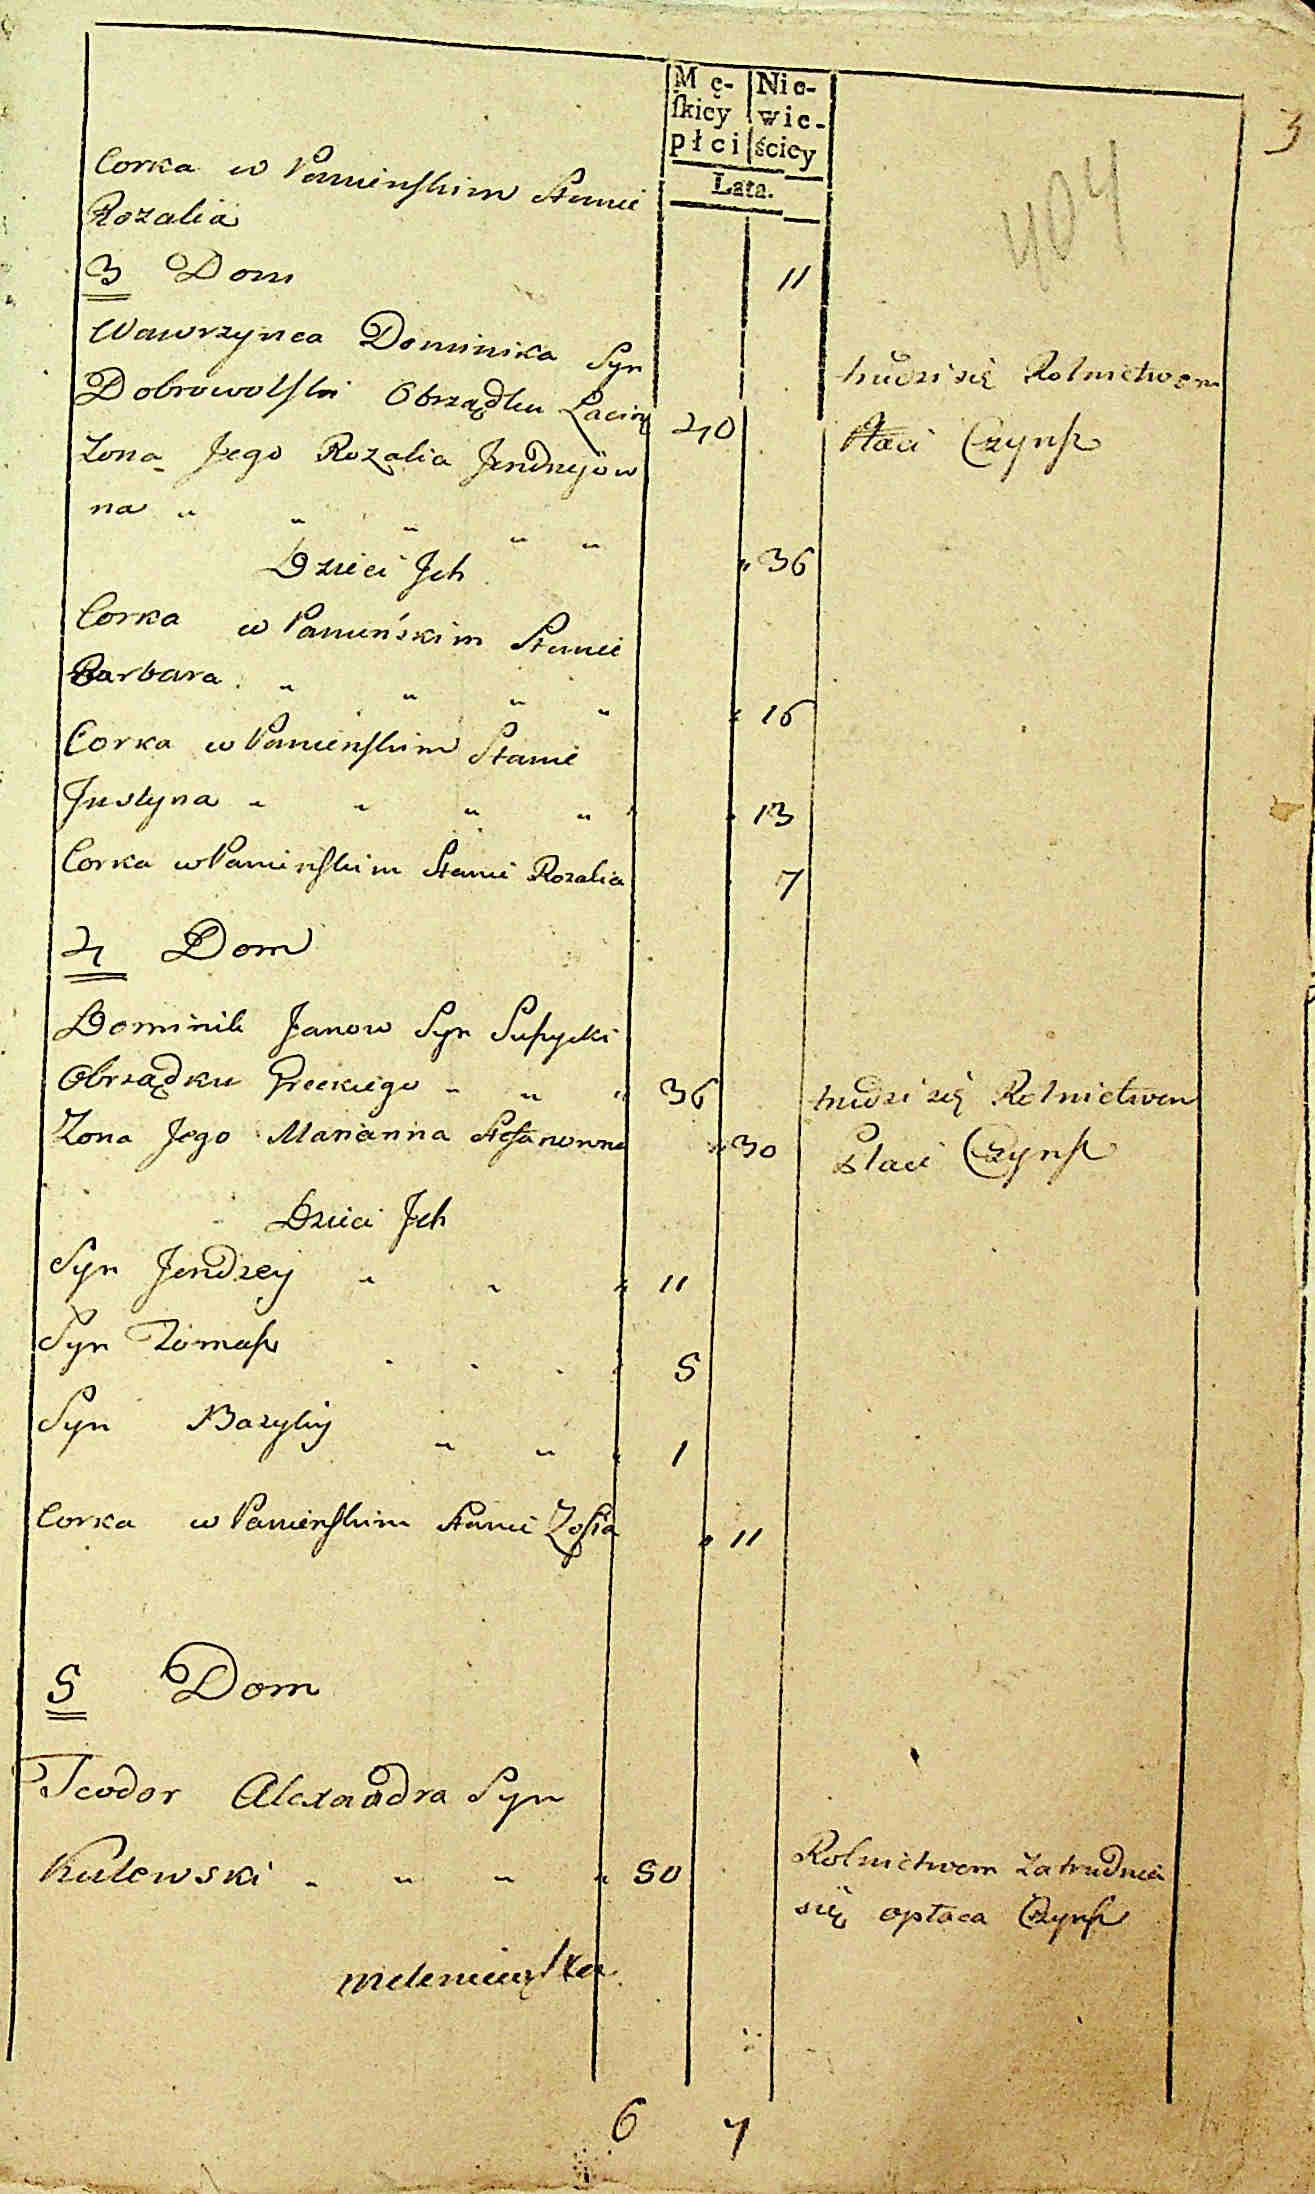 3
404
Mę- Nie-
skiey wie-
płci ściey
Lata.
Corka w Panienskim Stanie
Rozalia 11
3 Dom
Wawrzynca Dominika Syn
Dobrowolski Obrządku Łaciń 40 trudzi się Rolnictwem
płaci Czynsz
Zona Jego Rozalia Jendrzejow
na " " " " " 36
Dzieci Ich
Corka w Panieńskim Stanie
Barbara " " " " 16
Corka w Panienskim Stanie
Justyna " " " " 13
Corka w Panienskim Stanie Rozalia 7
4 Dom
Dominik Janow Syn
Obrządku Greckiego " " " 36 trudzi się Rolnictwem
Zona Jego Marianna Stefanowna " 30 płaci Czynsz
Dzieci Ich
Syn Jendrzey " " " 11
Syn Tomasz " " " " 5
Syn Bazyli " " " 1
Corka w Panienskim Stanie Zofia " 11
5 Dom
Teodor Alexandra Syn
Kulewski " " " " 50 Rolnictwem zatrudnia
się opłaca Czynsz
6 7